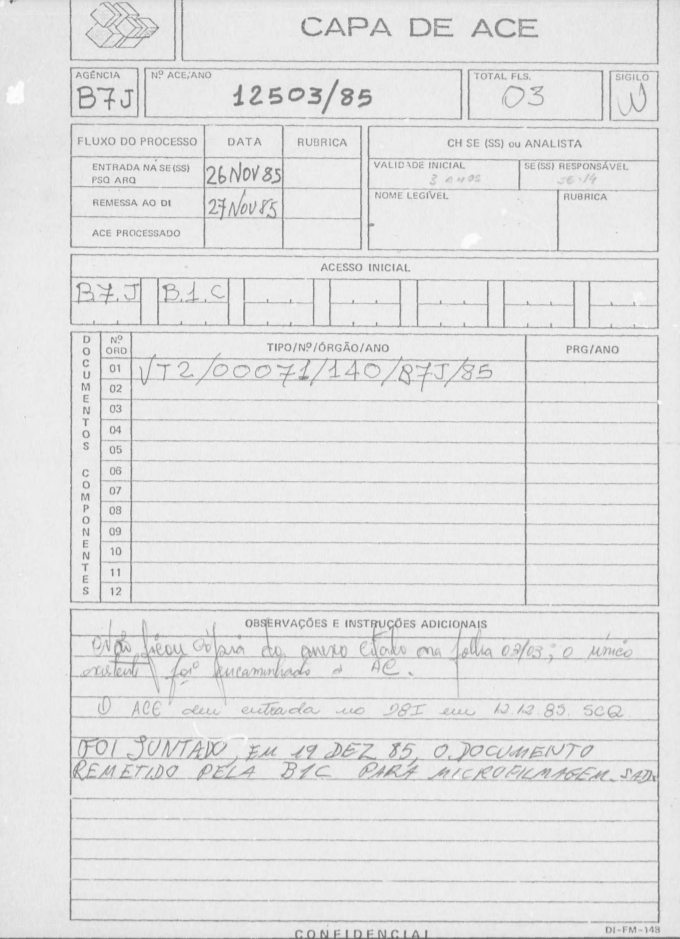 CAPA DE ACE
AGÊNCIA
B7J
Nº ACE/ANO
12503/85
TOTAL FLS.
03
SIGILO
FLUXO DO PROCESSO DATA RUBRICA
ENTRADA NA SE(SS)
PSQ ARQ
26 NOV 85
REMESSA AO DI 27 NOV 85
ACE PROCESSADO
CH SE (SS) ou ANALISTA
VALIDADE INICIAL
3 anos
SE(SS) RESPONSÁVEL
SE-14
NOME LEGÍVEL
RUBRICA
ACESSO INICIAL
B7.J B.1.C
DOCUMENTOS COMPONENTES
Nº ORD TIPO/Nº/ÓRGÃO/ANO PRG/ANO
01 VT2/00071/140/B7J/85
02
03
04
05
06
07
08
09
10
11
12
OBSERVAÇÕES E INSTRUÇÕES ADICIONAIS
Não ficou cópia do anexo citado na folha 03/03; o único
existente foi encaminhado à AC.
O ACE deu entrada no em 12.12.85. SCQ
FOI JUNTADO, EM 19 DEZ 85, O DOCUMENTO
REMETIDO PELA B1C PARA MICROFILMAGEM. SAD.
CONFIDENCIAL
DI-FM-148